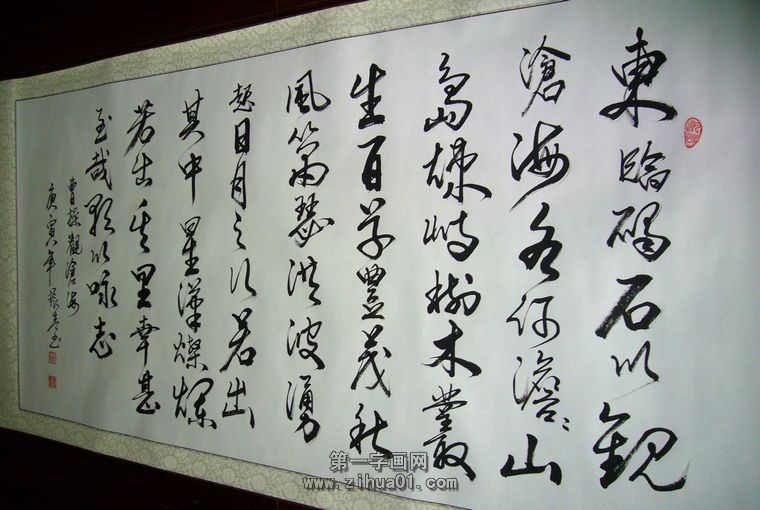 東臨碣石以觀
滄海水何澹〻山
島竦峙樹木叢
生百草豐茂秋
風蕭瑟洪波湧
起日月之行若出
其中星漢燦爛
若出其里幸甚
至哉歌以咏志
曹操觀滄海
庚寅年振書
第一字画网
www.zihua01.com